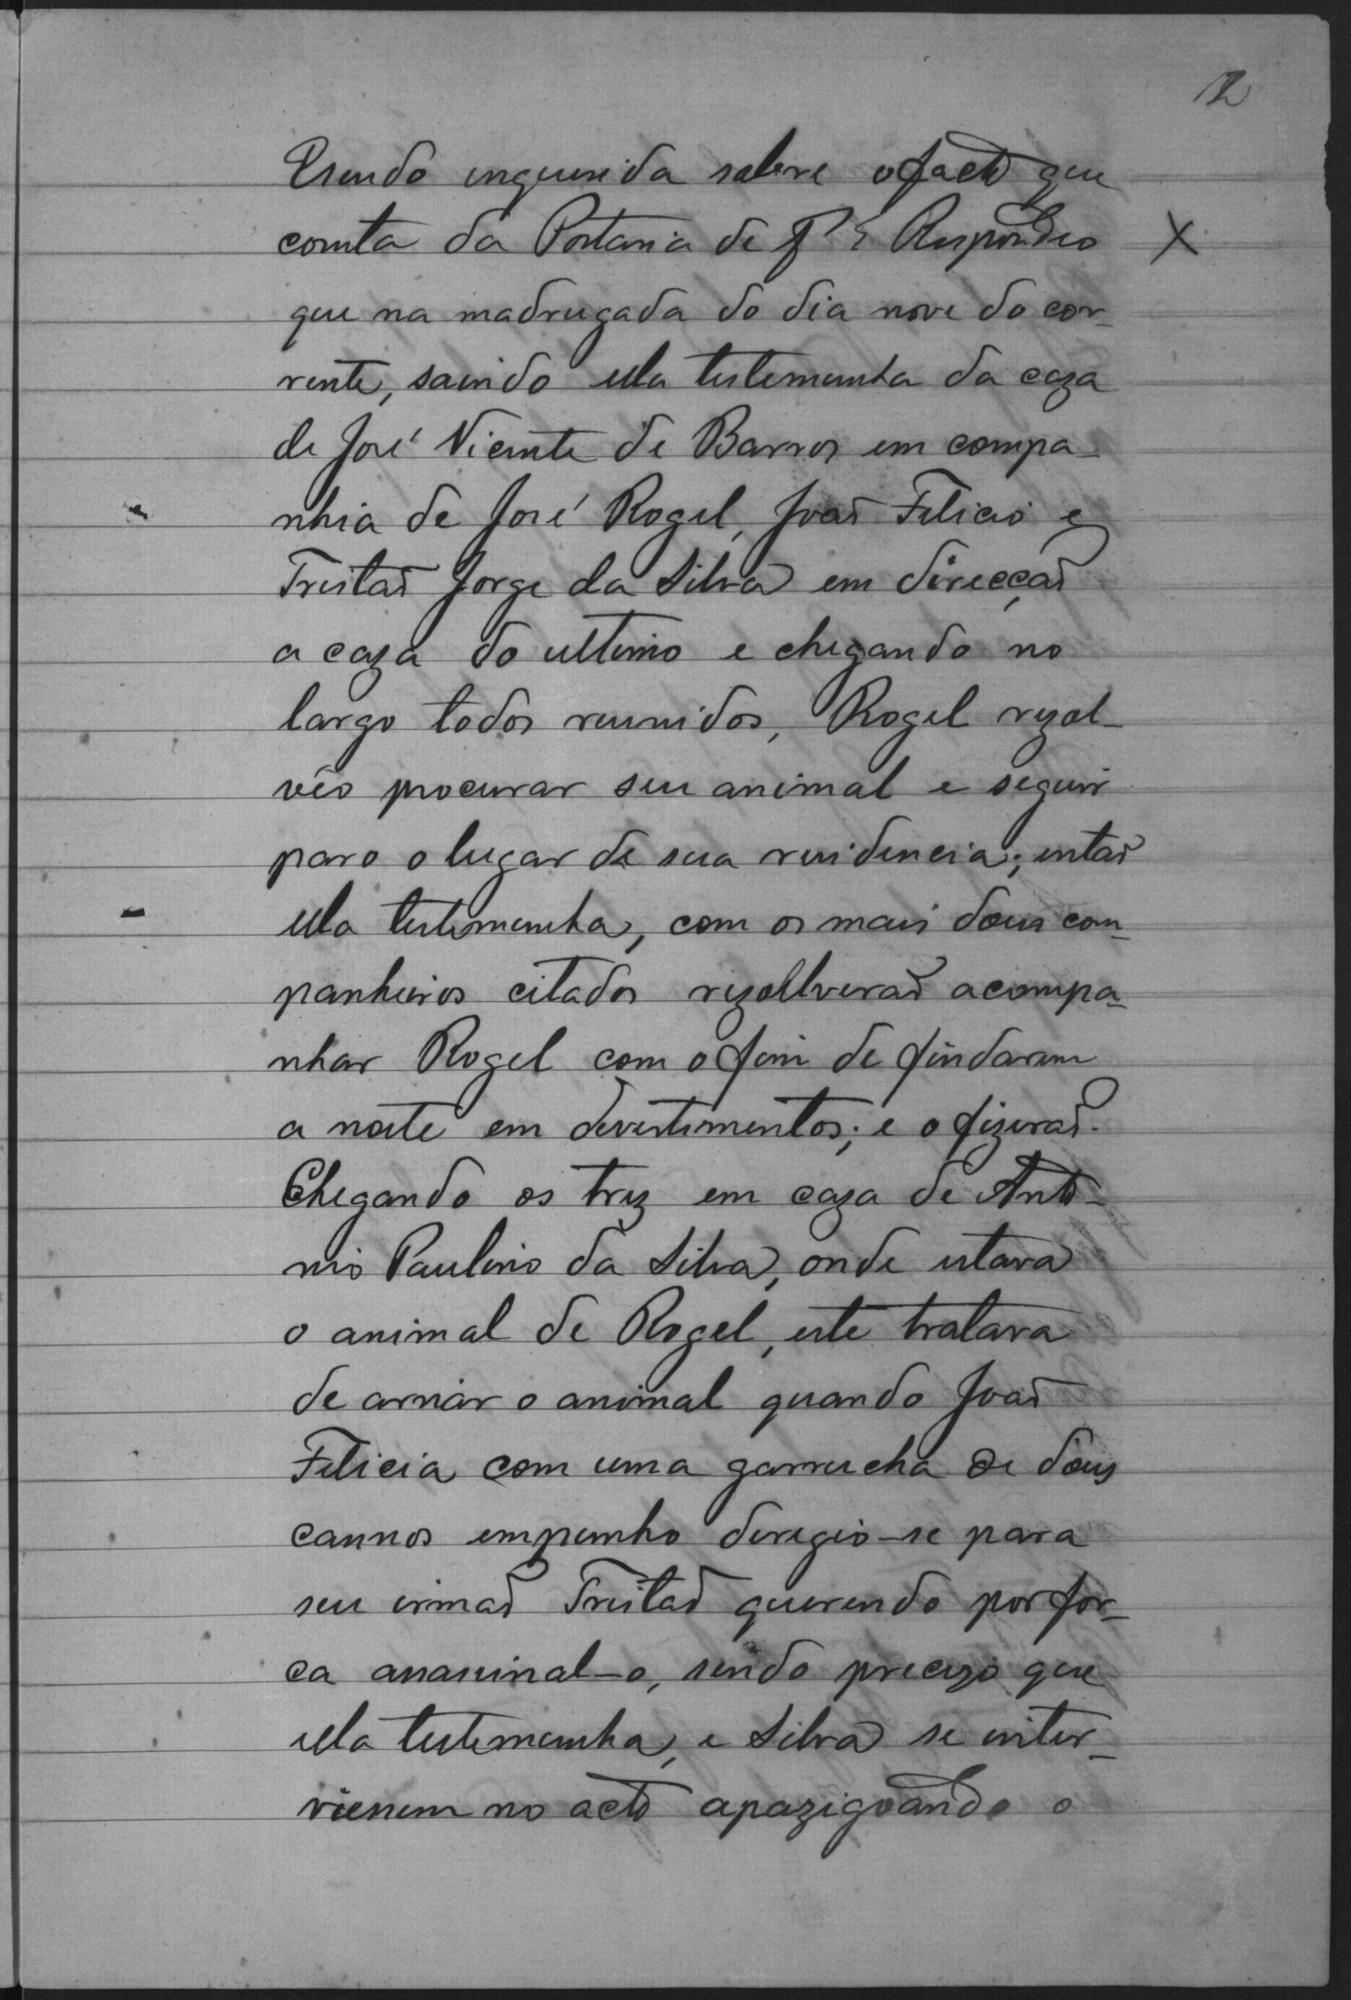 2
Esendo inquerida sobre o facto que
consta da Portaria de f Respondeo X
que na madrugada do dia nove do cor-
rente, saindo ella testemunha da caza
de José Vicente de Barros em compa-
nhia de José Rogel, João Felicio e
Tristão Jorge da Silva em direcção
a caza do ultimo e chegando no
largo todos reunidos, Rogel rezol-
vêo procurar seu animal e seguir
paro o lugar de sua residencia; então
ella testemunha, com os mais dous com-
panheiros citados rezollverão acompa-
nhar Rogel com o fim de findarem
a noite em devertimentos; e o fizerão.
Chegando os trez em caza de Anto-
nio Paulino da Silva, onde estava
o animal de Rogel, este tratava
de arriar o animal quando João
Felicia com uma garrucha de dous
cannos empunho deregio-se para
seu irmão Tristão querendo por for-
ca assassinal-o, sendo precizo que
ella testemunha, e Silva se inter-
viesem no acto apazigoando o